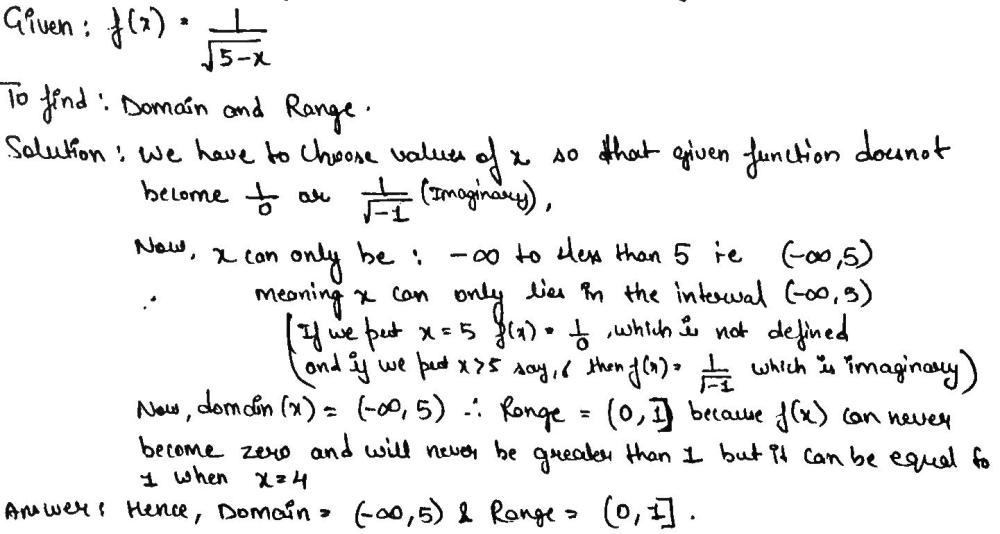 Given : f(x) = 1/√5-x
To find : Domain and Range.
Solution : We have to choose values of x so that given function doesnot
become 1/0 or 1/√-1 (Imaginary),
Now, x can only be : -∞ to less than 5 ie (-∞,5)
∴ meaning x can only lies in the interval (-∞,5)
(If we put x = 5 f(x) = 1/0 , which is not defined
and if we put x>5 say,6 then f(x) = 1/√-1 which is imaginary)
Now, domain (x) = (-∞, 5) ∴ Range = (0,1] because f(x) can never
become zero and will never be greater than 1 but it can be equal to
1 when x=4
Answer : Hence, Domain = (-∞,5) & Range = (0,1].